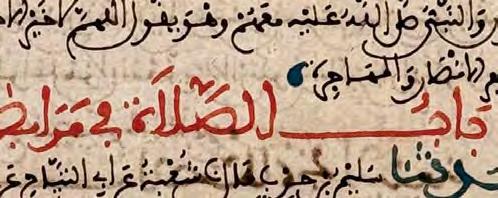 والنبي صلى الله عليه معهم وهو يقول اللهم لا خير
الانصار والمهاجره
بَابُ الصَّلَاةِ في مَرَابض
حدثنا سليمن بن حرب قال نا شعبة عن ابي التياح عن